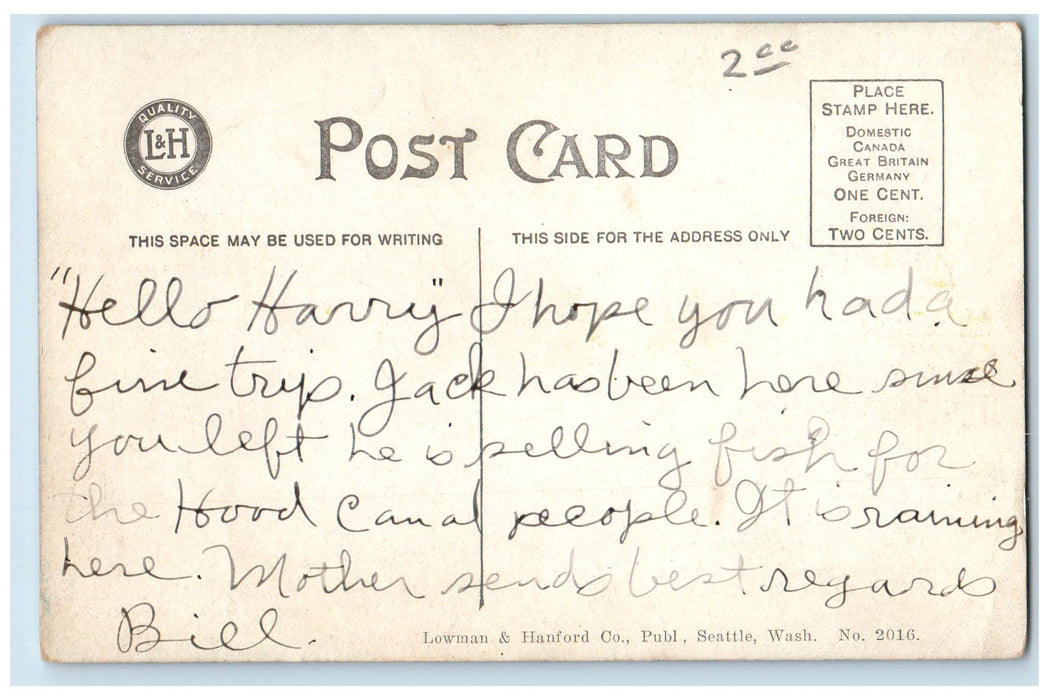 2 00
QUALITY
L&H
SERVICE
POST CARD
PLACE
STAMP HERE.
DOMESTIC
CANADA
GREAT BRITAIN
GERMANY
ONE CENT.
FOREIGN:
TWO CENTS.
THIS SPACE MAY BE USED FOR WRITING
THIS SIDE FOR THE ADDRESS ONLY
"Hello Harry" I hope you had a
fine trip. Jack has been here since
you left he is selling fish for
the Hood Canal people. It is raining
here. Mother sends best regards
Bill.
Lowman & Hanford Co., Publ., Seattle, Wash. No. 2016.